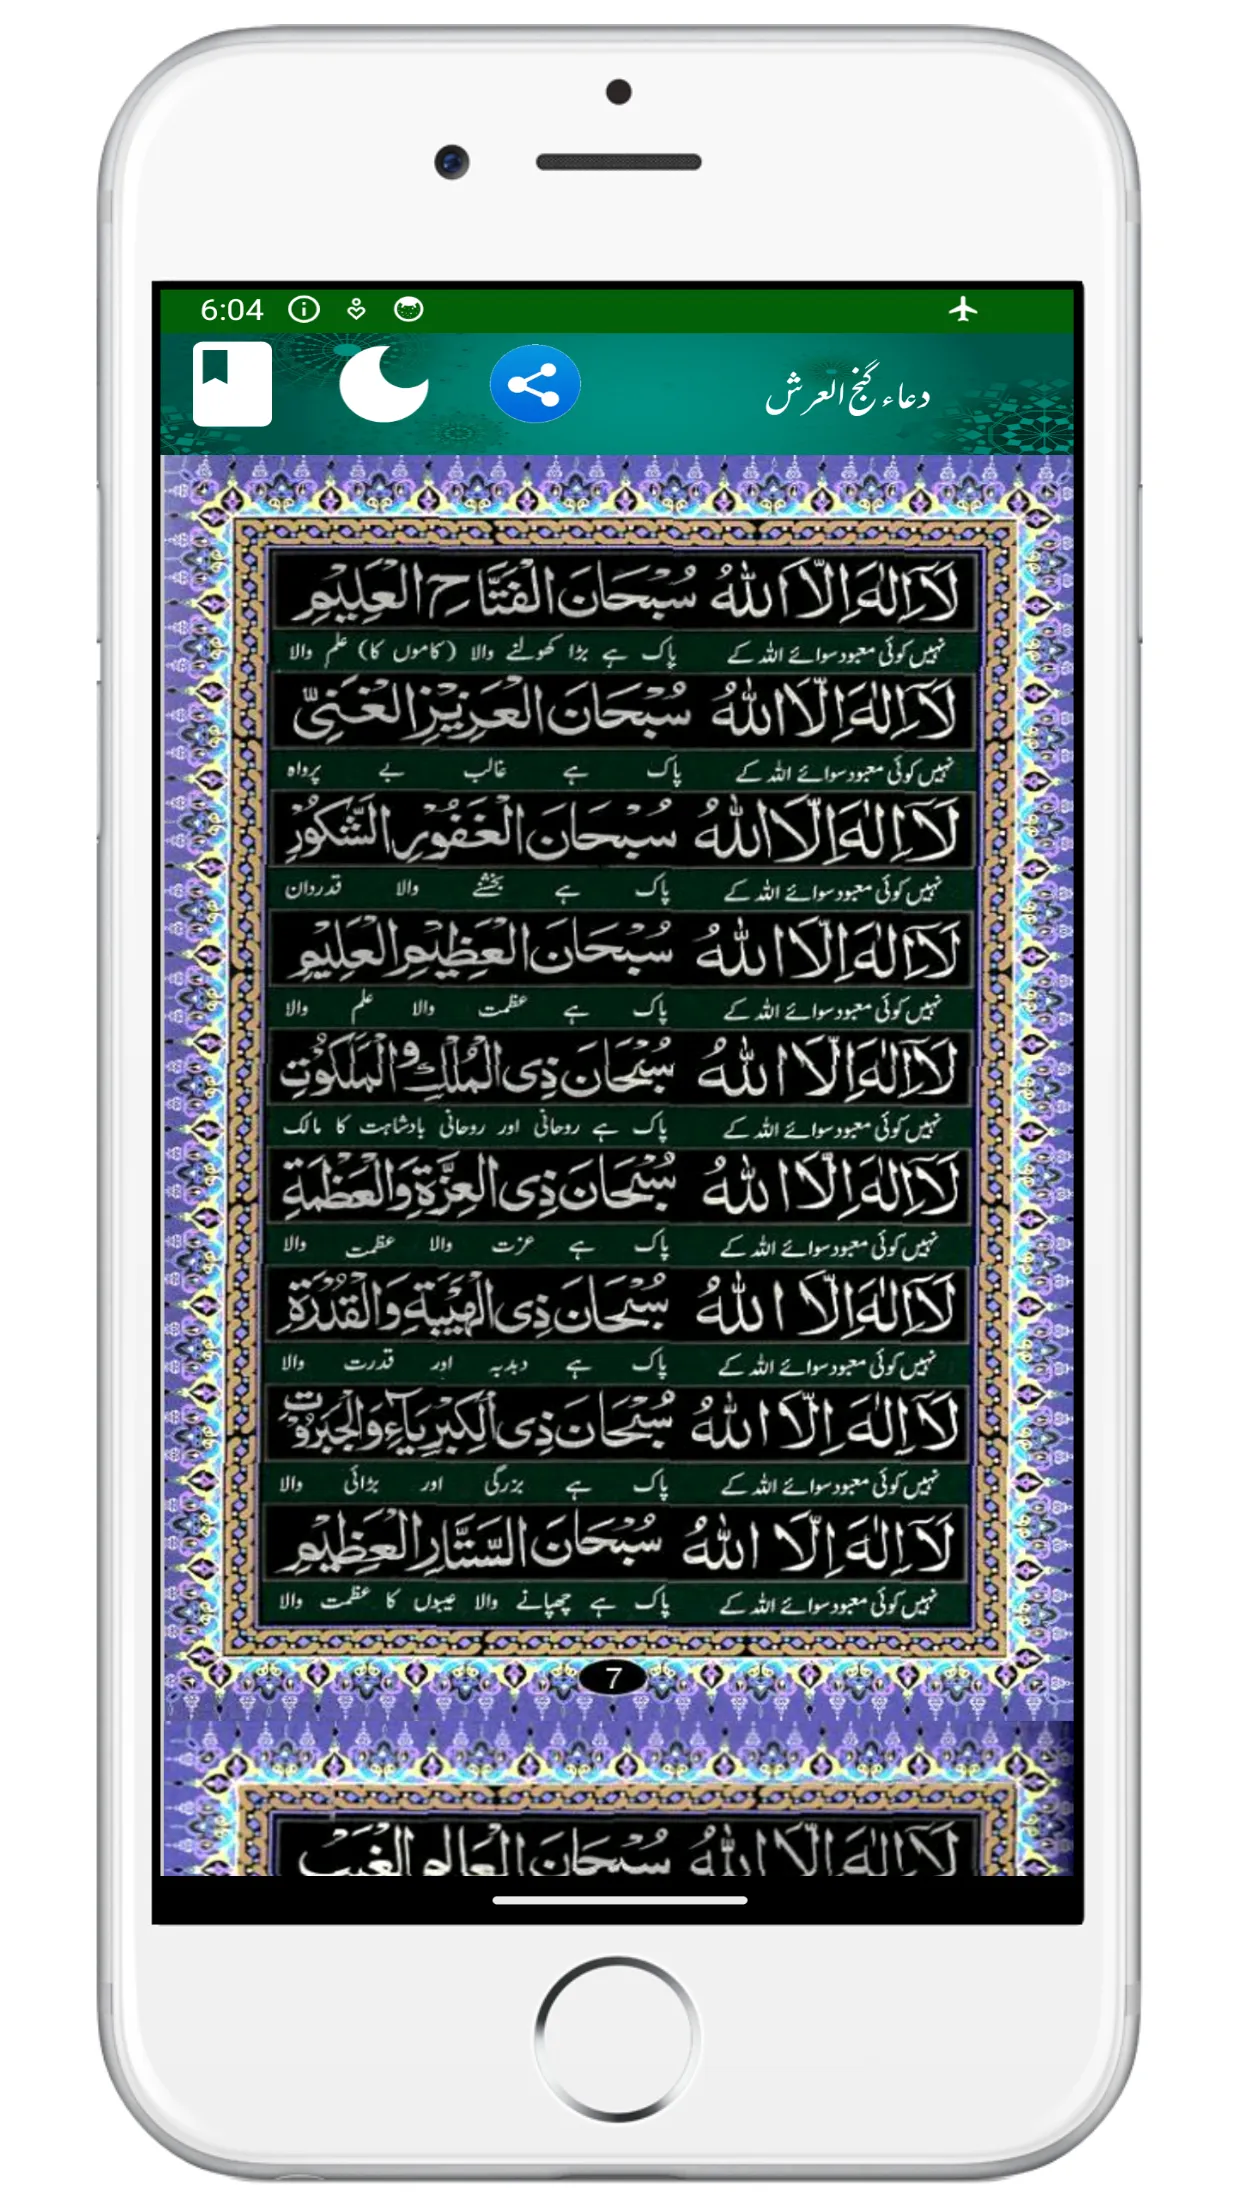 6:04
دعاء گنج العرش
لَآ اِلٰهَ اِلَّا اللّٰهُ سُبْحَانَ الْفَتَّاحِ الْعَلِيْمِ
نہیں کوئی معبود سوائے اللہ کے پاک ہے بڑا کھولنے والا (کاموں کا) علم والا
لَآ اِلٰهَ اِلَّا اللّٰهُ سُبْحَانَ الْعَزِيْزِ الْغَنِیِّ
نہیں کوئی معبود سوائے اللہ کے پاک ہے غالب بے پرواہ
لَآ اِلٰهَ اِلَّا اللّٰهُ سُبْحَانَ الْغَفُوْرِ الشَّكُوْرِ
نہیں کوئی معبود سوائے اللہ کے پاک ہے بخشنے والا قدردان
لَآ اِلٰهَ اِلَّا اللّٰهُ سُبْحَانَ الْعَظِيْمِ الْعَلِيْمِ
نہیں کوئی معبود سوائے اللہ کے پاک ہے عظمت والا علم والا
لَآ اِلٰهَ اِلَّا اللّٰهُ سُبْحَانَ ذِی الْمُلْكِ وَ الْمَلَكُوْتِ
نہیں کوئی معبود سوائے اللہ کے پاک ہے روحانی اور روحانی بادشاہت کا مالک
لَآ اِلٰهَ اِلَّا اللّٰهُ سُبْحَانَ ذِی الْعِزَّةِ وَالْعَظْمَةِ
نہیں کوئی معبود سوائے اللہ کے پاک ہے عزت والا عظمت والا
لَآ اِلٰهَ اِلَّا اللّٰهُ سُبْحَانَ ذِی الْهَيْبَةِ وَالْقُدْرَةِ
نہیں کوئی معبود سوائے اللہ کے پاک ہے دبدبہ اور قدرت والا
لَآ اِلٰهَ اِلَّا اللّٰهُ سُبْحَانَ ذِی الْكِبْرِيَآءِ وَالْجَبَرُوْتِ
نہیں کوئی معبود سوائے اللہ کے پاک ہے بزرگی اور بڑائی والا
لَآ اِلٰهَ اِلَّا اللّٰهُ سُبْحَانَ السَّتَّارِ الْعَظِيْمِ
نہیں کوئی معبود سوائے اللہ کے پاک ہے چھپانے والا عیبوں کا عظمت والا
7
لَآ اِلٰهَ اِلَّا اللّٰهُ سُبْحَانَ الْعَالِمِ الْغَيْبِ